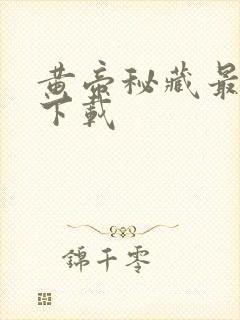 黄帝秘藏最
下載
錦千零